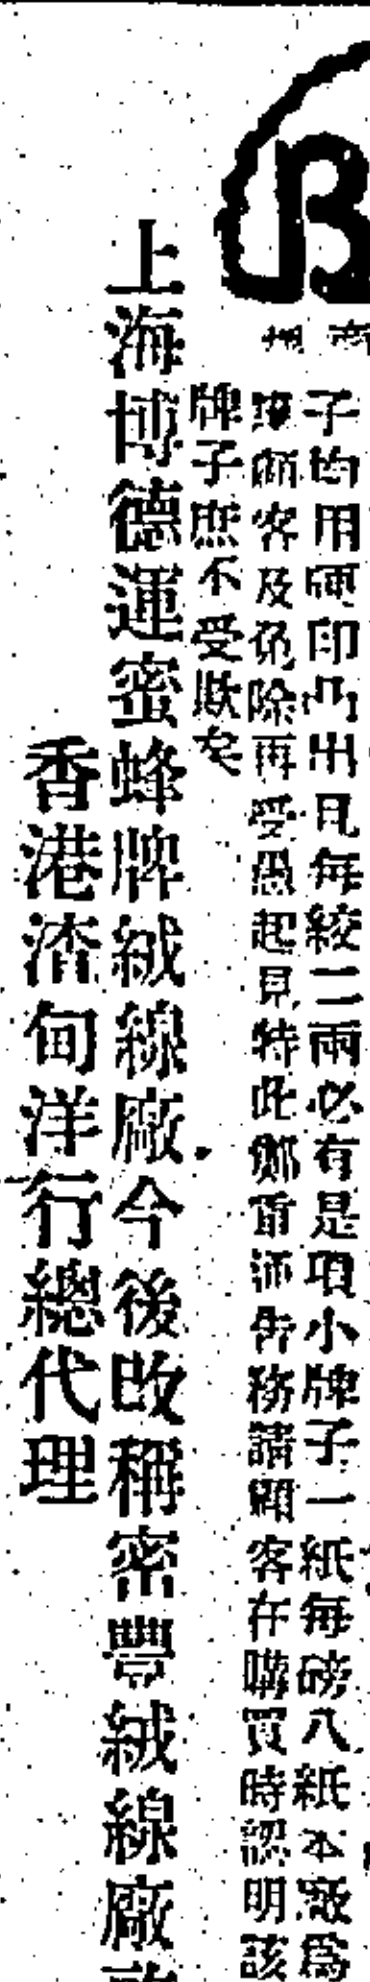 B
商
州
子均用硬印凸出凡每絞二兩必有是項小牌子一紙每磅八紙本廠爲
顧客及免除再受愚起見特此鄭重佈告務請顧客在購買時認明該
牌子庶不受欺矣
上海博德運蜜蜂牌絨線廠今後改稱密豐絨線廠啟
香港渣甸洋行總代理